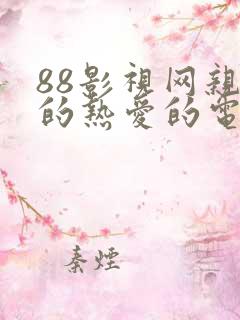 88影視网親
的热愛的電
秦煙